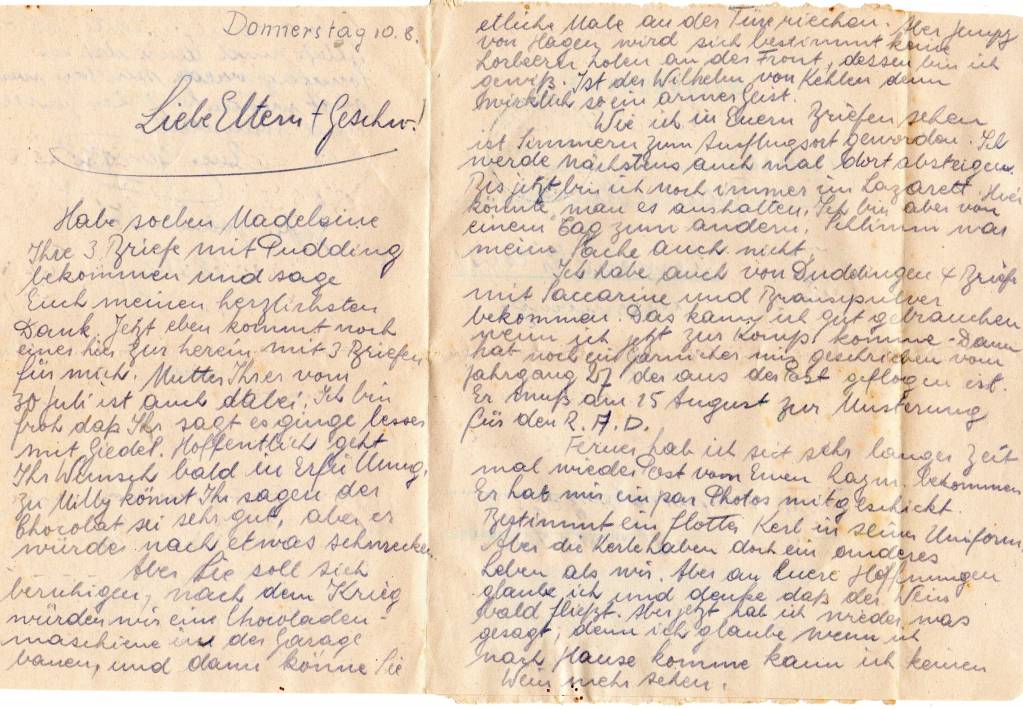 Donnerstag 10.8.
Liebe Eltern + Geschw.!
Habe soeben Madeleine
Ihre 3 Briefe mit Pudding
bekommen und sage
Euch meinen herzlichsten
Dank. Jetzt eben kommt noch
eines hier zur herein mit 3 Briefen
für mich. Mutter Ihrer vom
30 Juli ist auch dabei. Ich bin
froh daß Ihr sagt es ginge besser
mit Siedel. Hoffentlich geht
Ihr Wunsch bald in Erfüllung.
Zu Milly könnt Ihr sagen der
Chocolat sei sehr gut, aber er
würde nach etwas schmecken
Aber Sie soll sich
beruhigen, nach dem Krieg
würden wir eine Chocoladen-
maschiene in der Garage
bauen, und dann könne Sie
etliche Male an der Türe riechen. Aber Jempy
von Hagen wird sich bestimmt keine
Lorbeeren holen an der Front, dessen bin ich
gewiß. Ist der Wilhelm von Kehlen denn
wirklich so ein armer Geist.
Wie ich in Euern Briefen sehen
ist Simmern zum Ausflugsort geworden. Ich
werde nächstens auch mal dort absteigen.
Bis jetzt bin ich noch immer im Lazarett. Hier
könnte man es aushalten. Ich bin aber von
einem Tag zum andern. Schlimm war
meine Sache auch nicht.
Ich habe auch von Duddingen 4 Briefe
mit Saccarine und Brausepulver
bekommen. Das kann ich gut gebrauchen
wenn ich jetzt zur Komp. komme. Dann
hat noch ein Garnicher mir geschrieben vom
Jahrgang 27 der aus der Post geflogen ist.
Er muß am 15 August zur Musterung
für den R. A. D.
Ferner hab ich seit sehr langer Zeit
mal wieder Post vom Emen bekommen
Er hat mir ein par Photos mitgeschickt.
Bestimmt ein flotter Kerl in seiner Uniform
Aber die Kerle haben doch ein anderes
Leben als wir. Aber an Euere Hoffnungen
glaube ich und denke daß der Wein
bald fließt. Aber jetzt hab ich wieder was
gesagt, denn ich glaube wenn ich
nach Hause komme kann ich keinen
Wein mehr sehen.